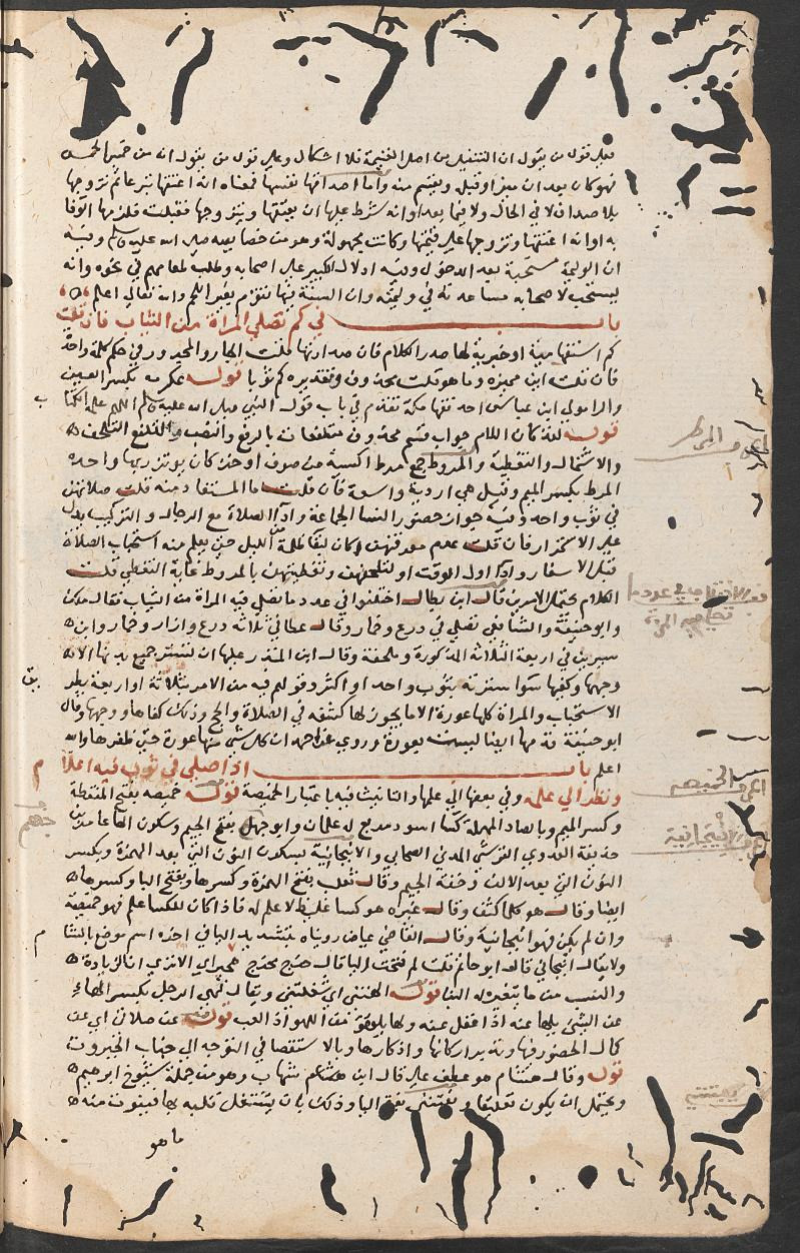 فعلى قول من يقول ان التنفيل من اصل الغنيمة فلا اشكال وعلى قول من يقول انه من خمس الخمس
فهو كان بعد ان ميز او قبل ويقسم منه واما اصداقها نفسها فمعناه انه اعتقها تبرعا ثم تزوجها
بلا صداق لا في الحال ولا فيما بعد او انه شرط عليها ان يعتقها ويتزوجها فقبلت فلزمها الوفا
به او انه اعتقها وتزوجها على قيمتها وكانت مجهولة وهو من خصايصه صلى الله عليه وسلم وفيه
ان الوليمة مستحبة بعد الدخول وفيه ادلال الكبير على اصحابه وطلب طعامهم في نحوه وانه
يستحب لاصحابه مساعدته في وليمته وان السنة فيها تقوم بغير اللحم والله تعالى اعلم
باب في كم تصلي المراة من الثياب فان قلت
كم استفهامية او خبرية لها صدر الكلام فان صدارتها قلت الجار والمجرور في حكم كلمة واحدة
فان قلت اين مميزه وما هو قلت محذوف وتقديره كم ثوبا قوله عكرمه بكسر العين
والرا مولى ابن عباس احد فقها مكة تقدم في باب قول النبي صلى الله عليه وسلم اللهم علمه الكتاب
قوله لقد كان اللام جواب قسم محذوف متلفعات بالرفع والنصب والتلفع التلحف
والاشتمال والتغطية والمروط جمع مرط اكسية من صوف او خز كان يوتزر بها واحده
المرط بكسر الميم وقيل هي اردية واسعة فان قلت ما المستفاد منه قلت صلاتهن
في ثوب واحد وفيه جواز حضور النسا الجماعة واداء الصلاة مع الرجال والتركيب يدل
على الاستمرار فان قلت عدم معرفتهن اكان لبقا ظلمة الليل حتى يعلم منه استحباب الصلاة
قبل الاسفار واداء اول الوقت او لتلحفهن وتغطيتهن بالمروط غاية التغطي قلت
الكلام يحتمل الامرين قال ابن بطال اختلفوا في عدد ما تصلي فيه المراة من الثياب فقال مالك
وابو حنيفة والشافعي تصلي في درع وخمار وقال عطا في ثلاثة درع وازار وخمار وابن
سيرين في اربعة الثلاثة المذكورة وملحفة وقال ابن المنذر عليها ان تستر جميع بدنها الا
وجهها وكفيها سوا سترته بثوب واحد او اكثر وقولهم فيه من الامر بثلاثة او اربعة بطريق
الاستحباب والمراة كلها عورة الا ما يجوز لها كشفه في الصلاة والحج وذلك كفاها ووجهها وقال
ابو حنيفة قدمها ايضا ليست بعورة وروي عن احمد ان كل شي منها عورة حتى ظفرها والله
اعلم باب اذا صلى في ثوب فيه اعلام
ونظر الى علمه وفي بعضها الى علمها والتانيث فيه باعتبار الخميصة قوله خميصه بفتح المنقطة
وكسر الميم وبالصاد المهملة كسا اسود مربع له علمان وابو جهم بفتح الجيم وسكون الها عامر بن
حذيفة العدوي القرشي المدني الصحابي والانبجانية بسكون النون التي بعد الهمزة وبكسر
النون التي بعد الالف وخفة الجيم وقال ثعلب بفتح الهمزة وكسرها وبفتح البا وكسرها
ايضا وقال هو كل ما كثف وقال غيره هو كسا غليظ لا علم له فاذا كان للكسا علم فهو خميصة
وان لم يكن فهو انبجانية وقال القاضي عياض رويناه بتشديد اليا في اخره اسم موضع بالشا
ولا يقال انبجاني قال ابو حاتم قلت لم فتحت البا قال خرج مخرج مخبراني الا ترى ان الزيادة
والنسب من ما يتغير له البنا قوله الهتني اي شغلتني ويقال لهي الرجل بكسر الهاء
عن الشئ يلها عنه اذا غفل عنه ولها يلهو من اللهو اذا لعب قوله عن صلاتي اي عن
كمال الحضور فيها وتدبر اركانها واذكارها وبالاستقصا في التوجه الى جناب الجبروت
قوله وقال هشام هو عطف على قال ابن شهاب وهو من جملة شيوخ ابرهيم
ويحتمل ان يكون تعليقا ويفتنني بفتح اليا وذلك بان يشتغل قلبه بها فيفوت منه
ما هو
المرط
الخميصه
الانبجانية
جهم